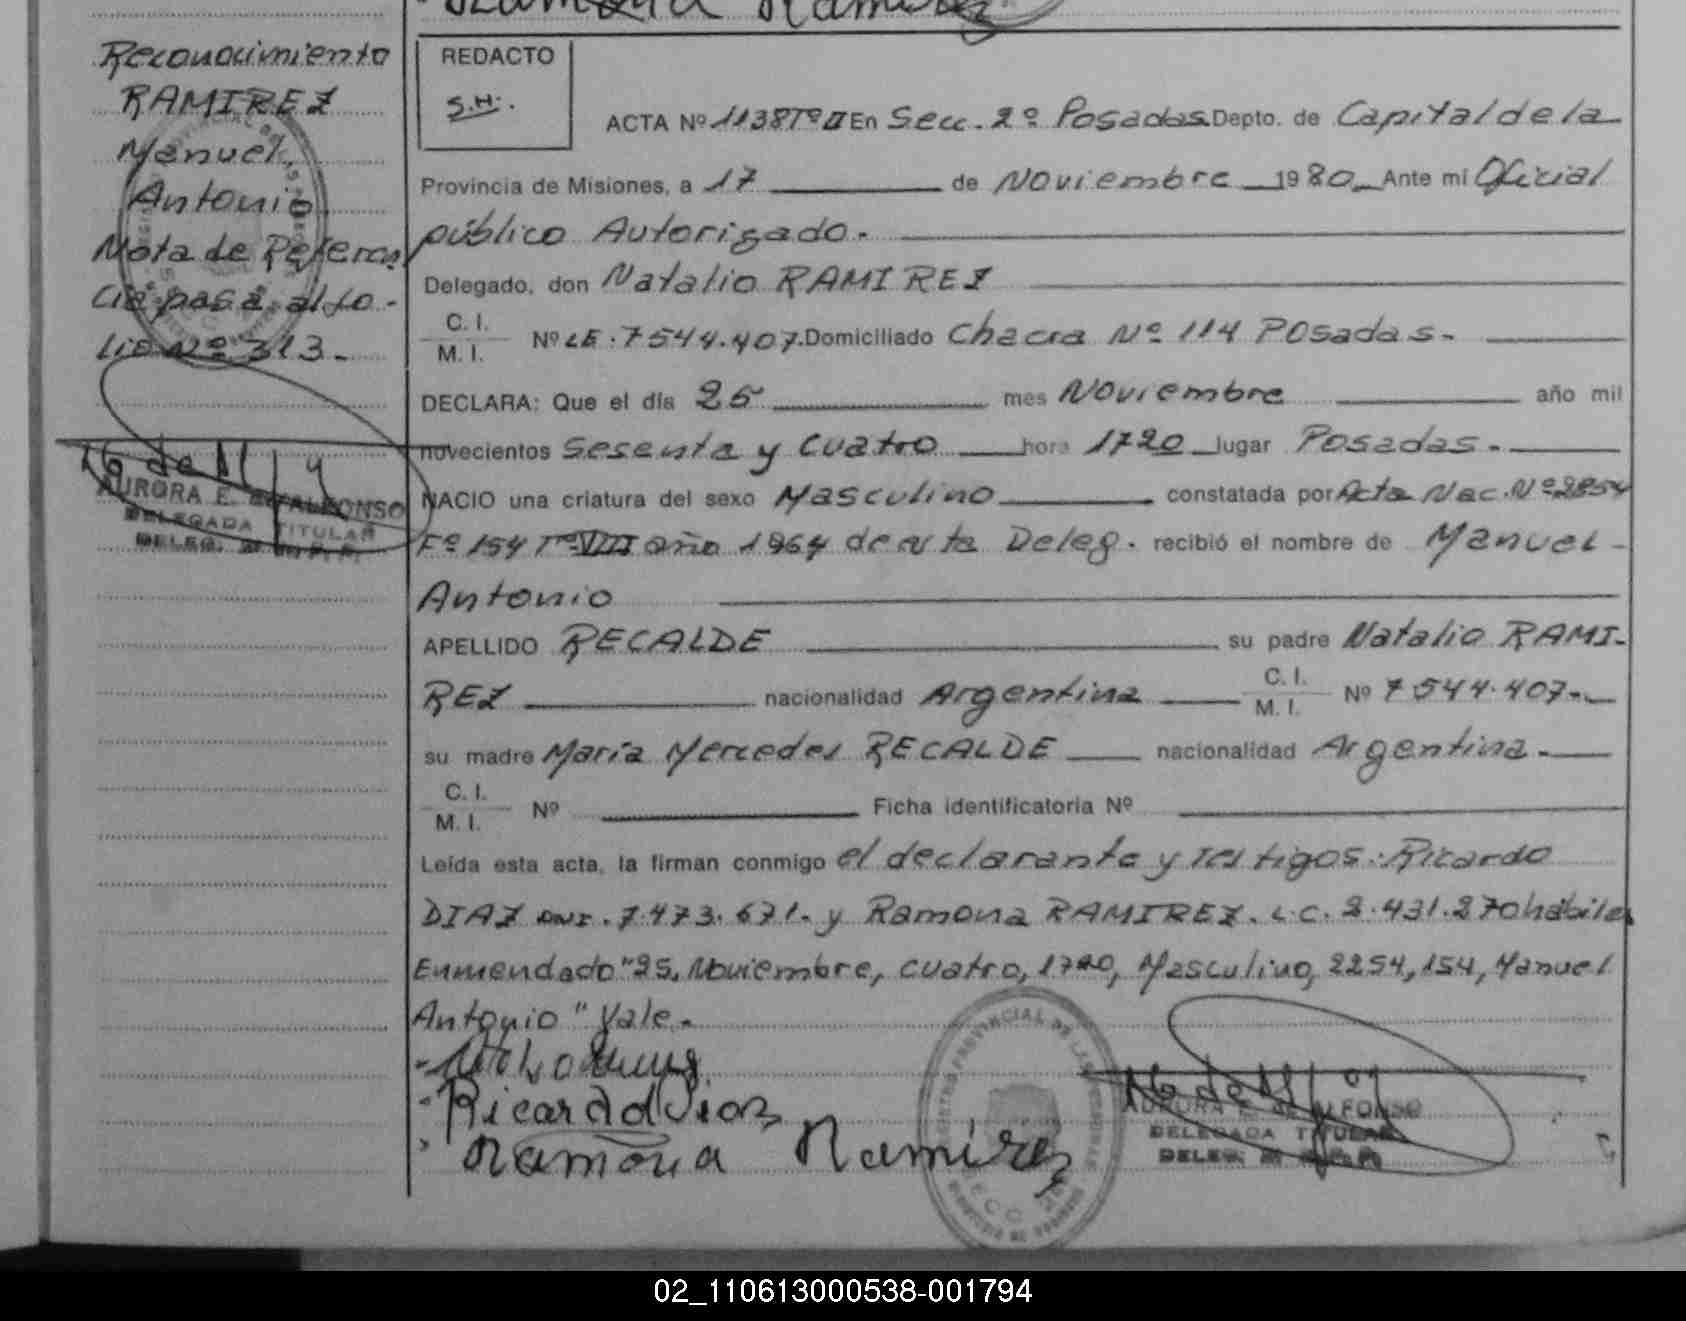 Ramona Ramirez
Reconocimiento
RAMIREZ
Manuel
Antonio
Nota de Referen
cia pasa al fo-
lio Nº 313.-
AURORA E. de ALFONSO
DELEGADA TITULAR
DELEG.
REDACTO
S.H.
ACTA Nº 1138 Tº II En Secc. 2º Posadas Depto. de Capital de la
Provincia de Misiones, a 17 de Noviembre 1980 Ante mi Oficial
público Autorizado.-
Delegado, don Natalio RAMIREZ
C. I.
M. I. Nº LE. 7544.407. Domiciliado Chacra Nº 114 Posadas.-
DECLARA: Que el día 25 mes Noviembre año mil
novecientos Sesenta y Cuatro hora 1720 lugar Posadas.-
NACIO una criatura del sexo Masculino constatada por Acta Nac. Nº 2254
Fº 154 Tº VIII año 1964 de esta Deleg. recibió el nombre de Manuel
Antonio
APELLIDO RECALDE su padre Natalio RAMI-
REZ nacionalidad Argentina C. I. M. I. Nº 7.544.407.-
su madre María Mercedes RECALDE nacionalidad Argentina.-
C. I.
M. I. Nº Ficha identificatoria Nº
Leída esta acta, la firman conmigo el declarante y testigos: Ricardo
DIAZ DNI. 7.473.671. y Ramona RAMIREZ. L.C. 2.431.270 hábiles
Enmendado "25, Noviembre, cuatro, 1720, Masculino, 2254, 154, Manuel
Antonio" Vale.-
Ricardo Diaz
Ramona Ramirez
REGISTRO PROVINCIAL DE LAS PERSONAS
AURORA E. de ALFONSO
DELEGADA TITULAR
DELEG.
02_110613000538-001794